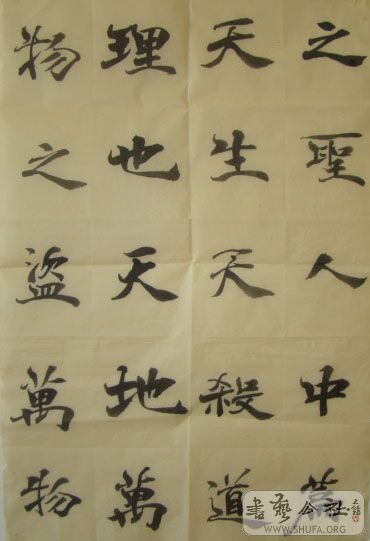 之聖人中篇
天生天殺道
理也天地萬
物之盜萬物
書藝公社
WWW.SHUFA.ORG